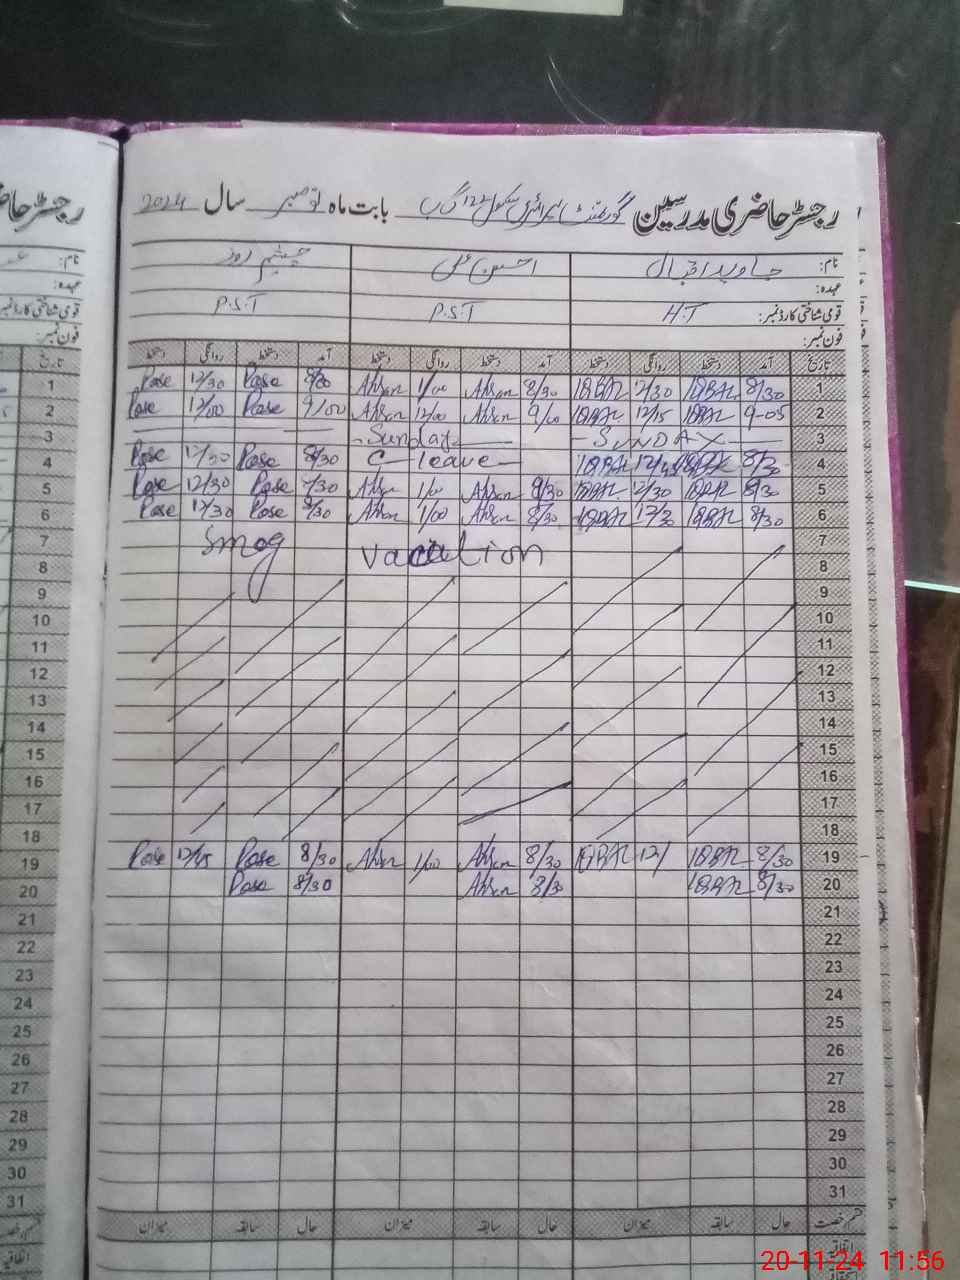 رجسٹر حاضری مدرسین گورنمنٹ پرائمری سکول 122 گ ب بابت ماہ نومبر سال 2024
نام: جاوید اقبال احسن علی
عہدہ:
قومی شناختی کارڈ نمبر: H.T P.S.T P.S.T
فون نمبر:
تاریخ آمد دستخط روانگی دستخط آمد دستخط روانگی دستخط آمد دستخط روانگی دستخط تاریخ
1 8/30 IQBAL 12/30 IQBAL 8/30 Ahsan 1/00 Ahsan 8/30 Rose 12/30 Rose 1
2 9-05 IQBAL 12/15 IQBAL 9/00 Ahsan 12/00 Ahsan 9/00 Rose 12/00 Rose 2
3 - SUNDAY - - Sunday - 3
4 8/30 IQBAL 12/45 IQBAL C - leave - 8/30 Rose 12/30 Rose 4
5 8/30 IQBAL 12/30 IQBAL 8/30 Ahsan 1/00 Ahsan Rose 12/30 Rose 5
6 8/30 IQBAL 12/30 IQBAL 8/30 Ahsan 1/00 Ahsan 8/30 Rose 12/30 Rose 6
7 Smog vacation 7
8 8
9 9
10 10
11 11
12 12
13 13
14 14
15 15
16 16
17 17
18 18
19 8/30 IQBAL 12/ IQBAL 8/30 Ahsan 1/00 Ahsan 8/30 Rose 12/45 Rose 19
20 8/30 IQBAL 8/30 Ahsan 8/30 Rose 20
21 21
22 22
23 23
24 24
25 25
26 26
27 27
28 28
29 29
30 30
31 31
قسم رخصت حال سابقہ میزان حال سابقہ میزان حال سابقہ میزان قسم رخصت
اتفاقیہ اتفاقیہ
20-11-24 11:56